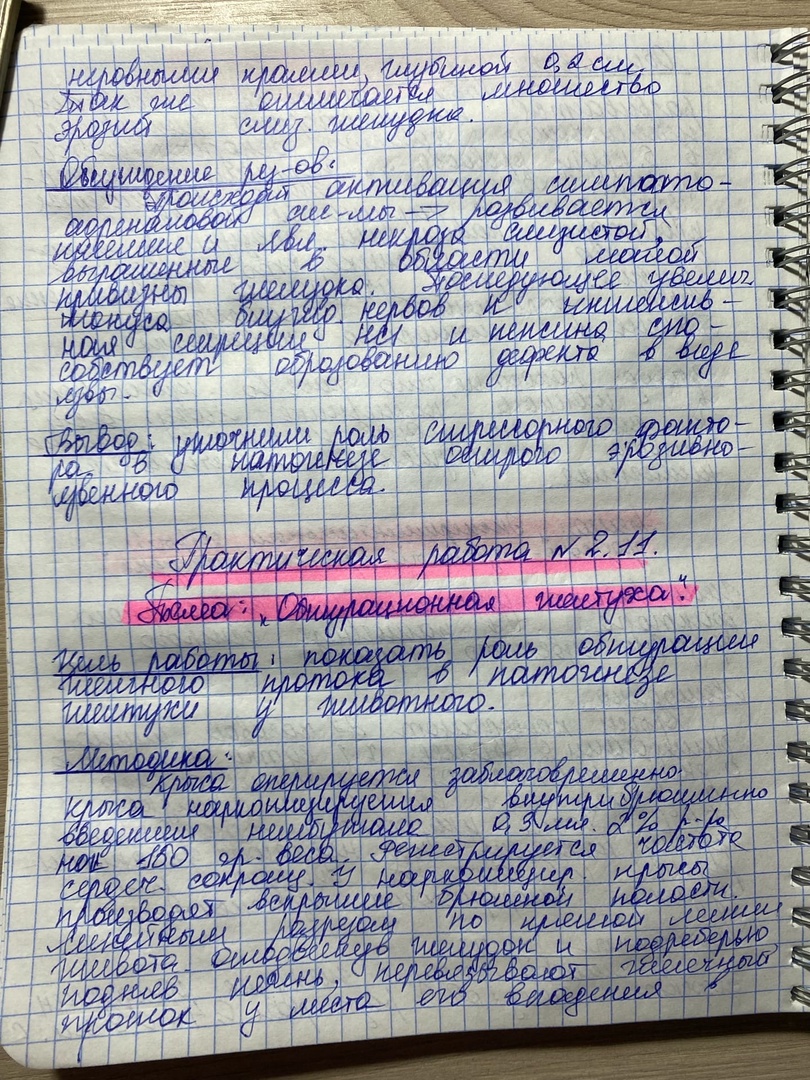 неровными краями, глубиной 0,2 см.
Так же отмечается множество
эрозий слиз. желудка.
Обсуждение рез-ов:
Происходит активация симпато-
адреналовой сис-мы → развивается
ишемия и явл. некроза слизистой,
выраженные в области малой
кривизны желудка. Последующее увелич.
тонуса блужд. нервов к интенсив-
ная секреция HCl и пепсина спо-
собствует образованию дефекта в виде
язвы.
Вывод: уточнили роль стрессорного факто-
ра в патогенезе острого эрозивно-
язвенного процесса.
Практическая работа №2.11.
Тема: „Обтурационная желтуха".
Цель работы: показать роль обтурации
желчного протока в патогенезе
желтухи у животного.
Методика:
Крыса оперируется заблаговременно.
Крыса наркотизируется внутрибрюшинно
введением нембутала 0,3 мл. 2% р-ра
на 150 гр. веса. Регистрируется частота
сердеч. сокращ. У наркотизир. крысы
производят вскрытие брюшной полости.
Линейным разрезом по прямой линии
живота. отодвинув желудок и подреберью
подняв печень, перевязывают желчный
проток у места его впадения в